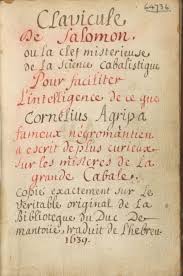 64736
Clavicule
De Salomon
ou la clef misterieuse
de la science cabalistique
Pour faciliter
L'intelligence de ce que
Cornélius Agripa
fameux négromantien
a escrit de plus curieux
sur les misteres de la
grande Cabale,
Copié exactement sur Le
Veritable original de La
Biblioteque du Duc De
mantoüe, traduit de L'hebreu
1639.